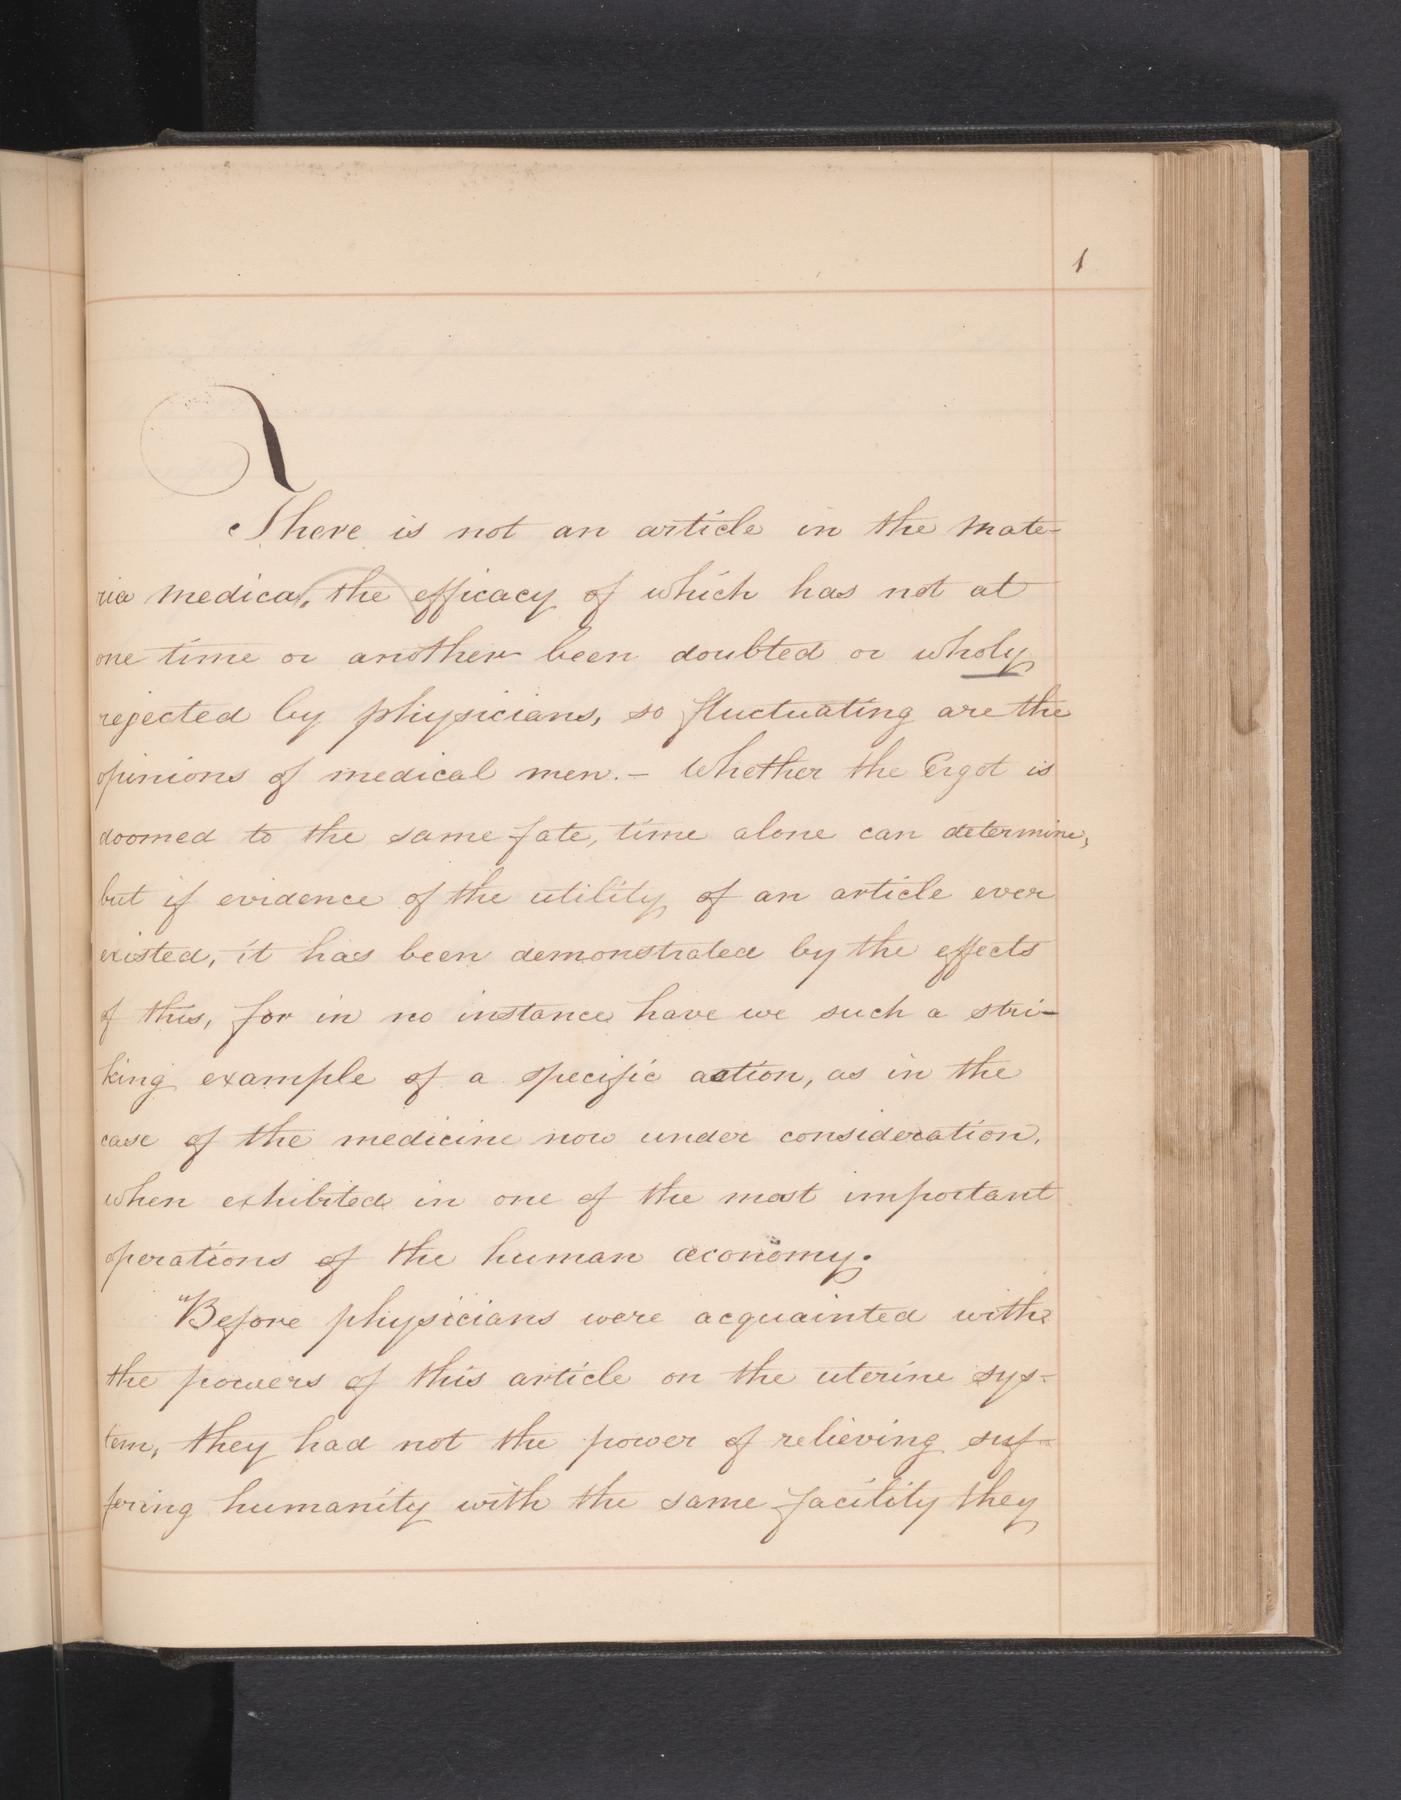 1
There is not an article in the mate-
ria medica, the efficacy of which has not at
one time or another been doubted or wholy
rejected by physicians, so fluctuating are the
opinions of medical men.- Whether the Ergot is
doomed to the same fate, time alone can determine,
but if evidence of the utility of an article ever
existed, it has been demonstrated by the effects
of this, for in no instance have we such a stri-
king example of a specific action, as in the
case of the medicine now under consideration,
when exhibited in one of the most important
operations of the human œconomy.
"Before physicians were acquainted with
the powers of this article on the uterine sys-
tem, they had not the power of relieving suf-
fering humanity with the same facility they